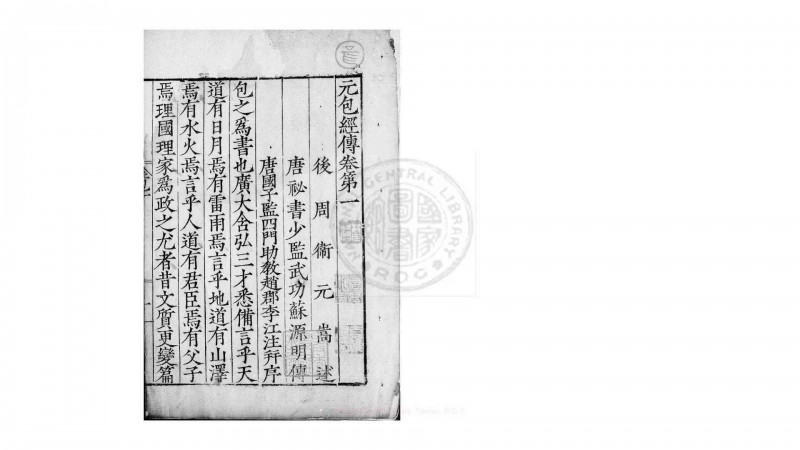 元包經傳卷第一
後周衞元嵩述
唐祕書少監武功蘇源明傳
唐國子監四門助教趙郡李江注幷序
包之爲書也廣大含弘三才悉備言乎天
道有日月焉有雷雨焉言乎地道有山澤
焉有水火焉言乎人道有君臣焉有父子
焉理國理家爲政之尤者昔文質更變篇
CENTRAL LIBRARY
國家
圖書